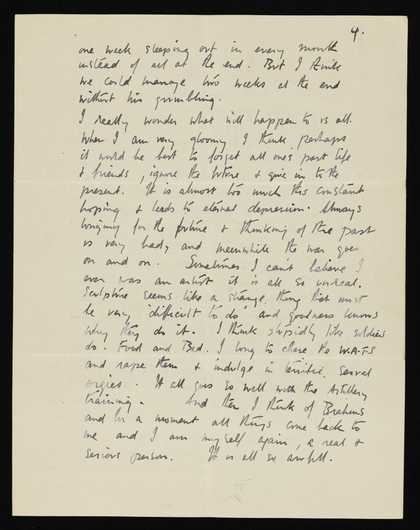 4.
one week sleeping out in every month
instead of all at the end. But I think
we could manage two weeks at the end
without his grumbling.
I really wonder what will happen to us all.
When I am very gloomy I think perhaps
it would be best to forget all ones past life
& friends, ignore the future & give in to the
present. It is almost too much this constant
hoping & leads to eternal depression. Always
longing for the future & thinking of the past
is very bad, and meanwhile the war goes
on and on. Sometimes I can't believe I
ever was an artist it is all so unreal.
Sculpture seems like a strange thing that must
be very difficult to do and goodness knows
why they do it. I think stupidly like soldiers
do - Food and Bed. I long to chase the W.A.T.S
and rape them & indulge in terrific, sexual
orgies. It all goes so well with the Artillery
training. And then I think of Brahms
and for a moment all things come back to
me and I am myself again, a real &
serious person. It is all so awful.